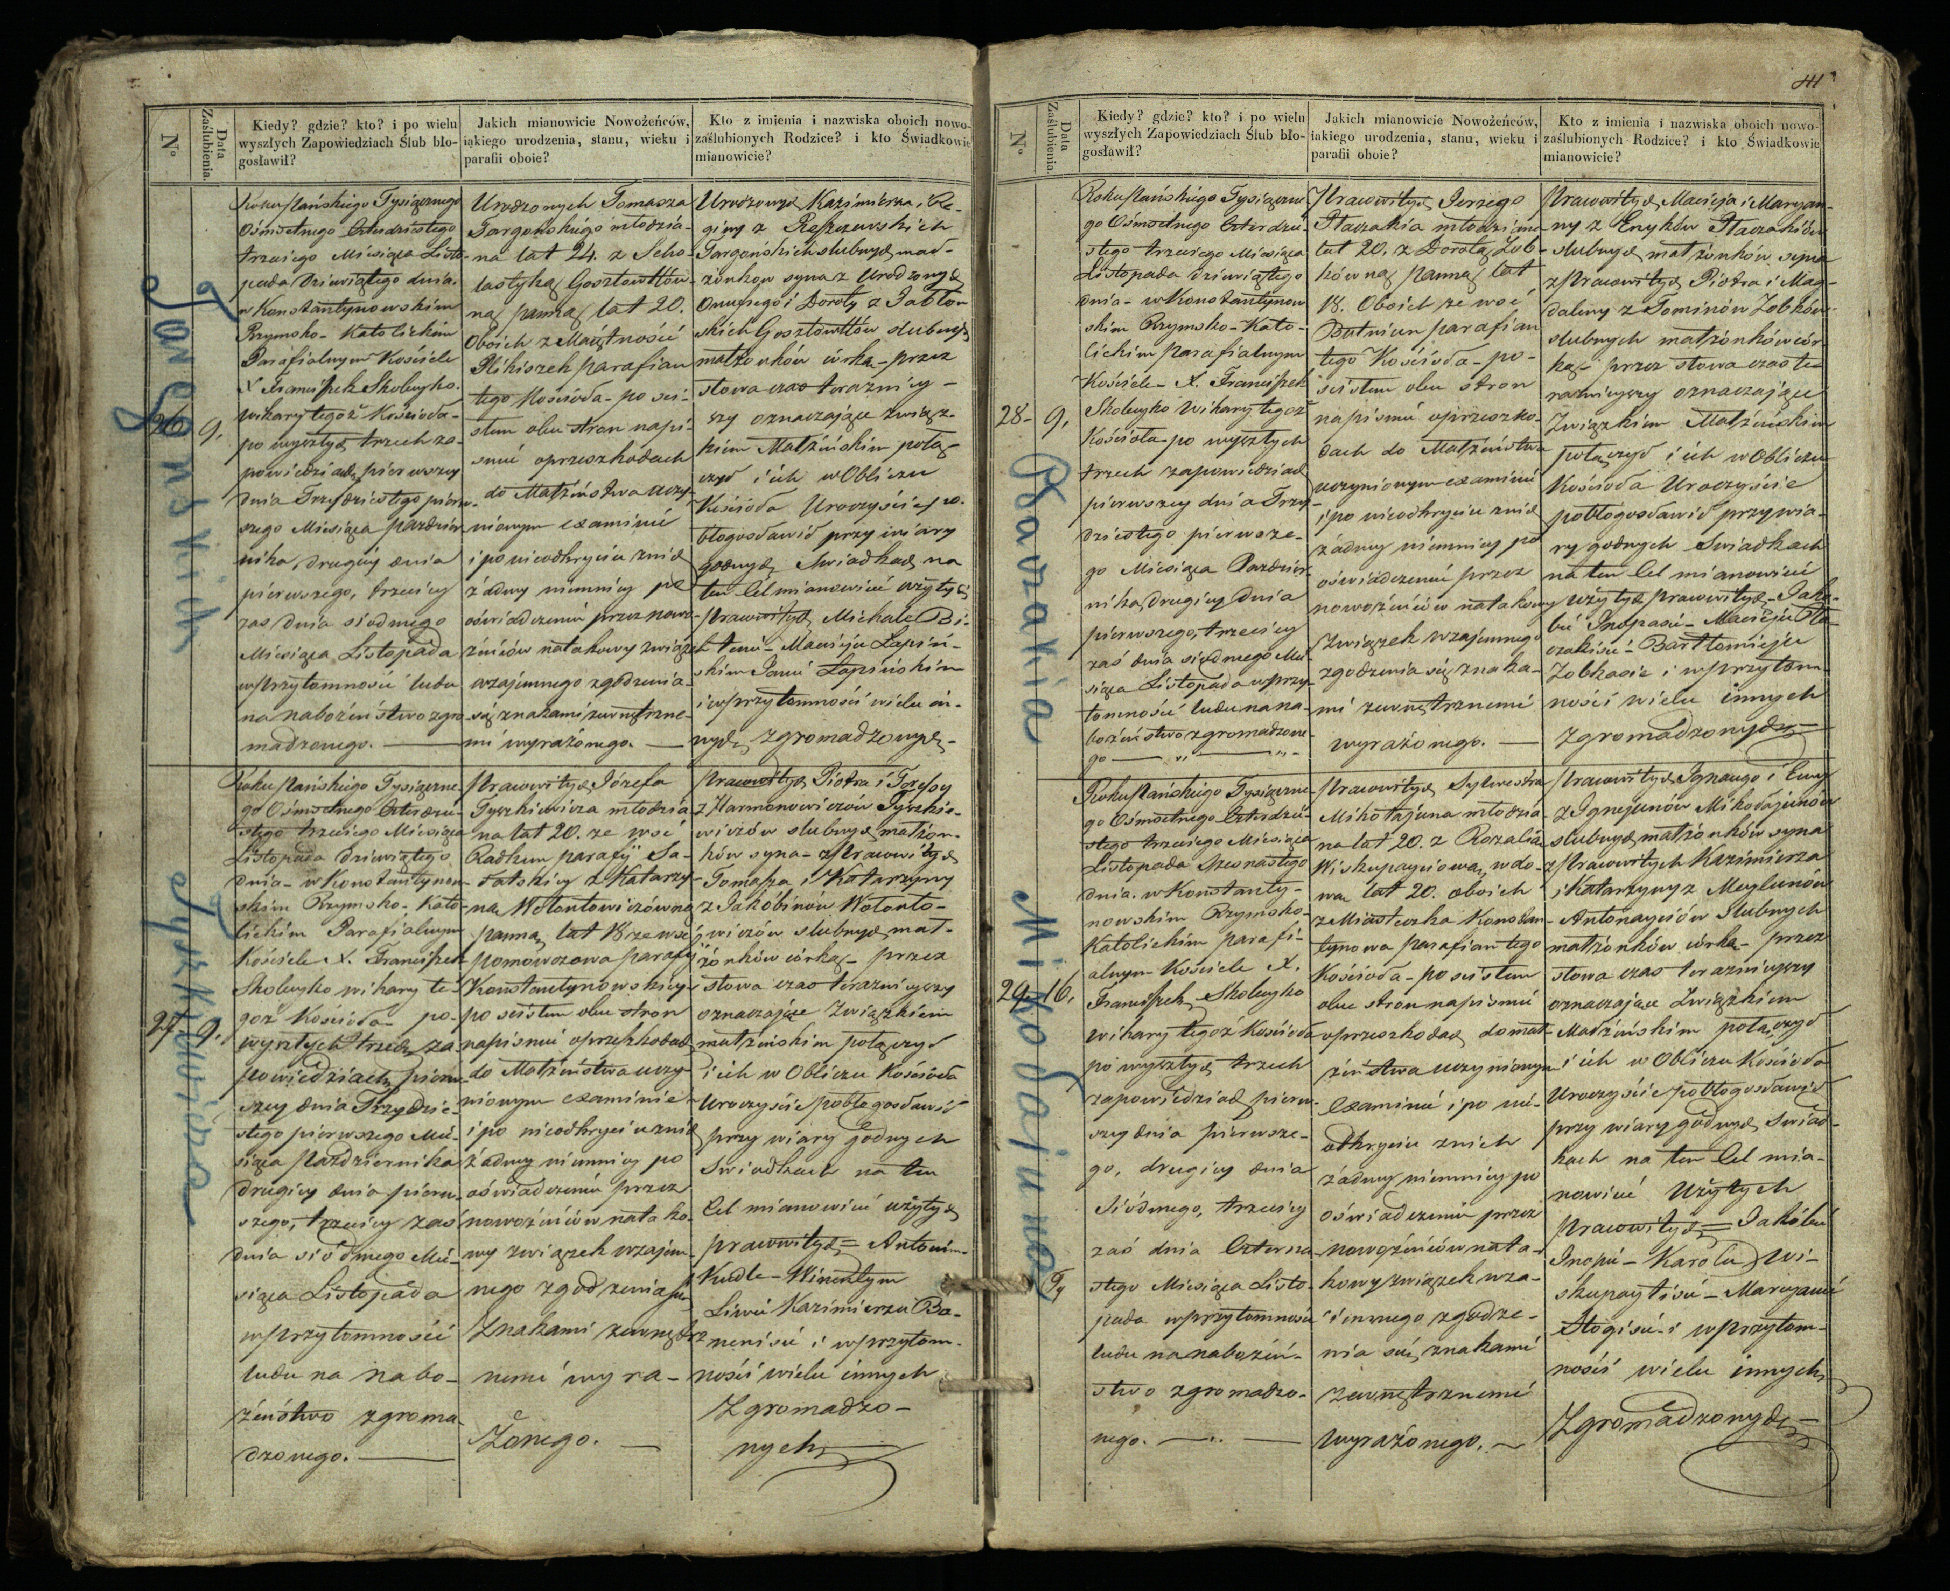 N°
Data Zaślubienia.
Kiedy? gdzie? kto? i po wielu
wyszłych Zapowiedziach Ślub bło-
gosławił?
Jakich mianowicie Nowożeńców,
iakiego urodzenia, stanu, wieku i
parafii oboie?
Kto z imienia i nazwiska oboich nowo-
zaślubionych Rodzice? i kto Świadkowie
mianowicie?
26
9.
Roku Pańskiego Tysiącznego
Ośmsetnego Czterdziestego
trzeciego Miesiąca Listo-
pada Dziewiątego dnia.
w Konstantynowskim
Rzymsko-Katolickim
Parafialnym Kościele
X. Franciszek Skoleyko.
wikary tegoż Kościoła-
po wyszłych trzech za-
powiedziach, pierwszey
dnia Trzydziestego pierw-
szego Miesiąca Paździer-
nika, drugiey dnia
pierwszego, trzeciey
zaś dnia siódmego
Miesiąca Listopada
w przytomności ludu
na nabożeństwo zgro-
madzonego.
Urodzonych Tomasza
Targońskiego młodzia-
na lat 24. z Scho-
lastyką Gosztowttów-
ną panną lat 20.
Oboich z Maiętności
Mikiszek parafian
tego Kościoła - po ści-
słem obu stron napi-
śmie o przeszkodach
do Małżeństwa uczy-
nionym examinie
i po nieodkryciu z nich
żadney niemniey po
oświadczeniu przez nowo-
żeńców na takowy związek
wzajemnego zgodzenia-
się znakami zewnętrzne-
mi wyrażonego.
Urodzonych Kazimierza i Ele-
giny z Reszczewskich
Targońskich ślubnych mał-
żonków syna z Urodzonych
Onufrego i Doroty z Jabłoń-
skich Gosztowttów ślubnych
małżonków córką - przez
słowa czas teraźniey-
szy oznaczające związ-
kiem Małżeńskim połą-
czył i ich w Obliczu
Kościoła Uroczyście po-
błogosławił przy wiary
godnych Świadkach na
ten Cel mianowicie użytych
Pracowitych Michale Bi-
- Macieju Łapiń-
skim Janie Łapińskim
i w przytomności wielu in-
nych zgromadzonych.
27
9.
Roku Pańskiego Tysiączne-
go Ośmsetnego Czterdzie-
stego trzeciego Miesiąca
Listopada dziewiątego
dnia - w Konstantynow-
skim Rzymsko-Kato-
lickim Parafialnym
Kościele X. Franciszek
Skoleyko wikary te-
goż Kościoła - po-
wyszłych trzech za-
powiedziach, pierw-
szey dnia Trzydzie-
stego pierwszego Mie-
siąca Października
drugiey dnia pierw-
szego, trzeciey zaś
dnia siódmego Mie-
siąca Listopada
w przytomności
ludu na nabo-
żeństwo zgroma-
dzonego.
Pracowitych Józefa
Tyszkiewicza młodzia-
na lat 20. ze wsi
Radkun parafij Sa-
łatskiey z Katarzy-
ną Wołontowiczówną
panną lat 18 ze wsi
Konstantynowskiey
po ścisłem obu stron
napiśmie o przeszkodach
do Małżeństwa uczy-
nionym examinie
i po nieodkryciu z nich
żadney niemniey po
oświadczeniu przez
nowożeńców na tako-
wy związek wzajem-
nego zgodzenia się
znakami zewnętrz-
nemi wyra-
żonego.
Pracowitych Piotra i Teressy
z Harmonowiczów Tyszkie-
wiczów ślubnych małżon-
ków syna - z Pracowitych
Tomasza i Katarzyny
z Jakóbinów Wołonto-
wiczów ślubnych mał-
żonków córką - przez
słowa czas teraźnieyszy
oznaczające Związkiem
małżeńskim połączył
i ich w Obliczu Kościoła
Uroczyście pobłogosławił
przy wiary godnych
Świadkach na ten
Cel mianowicie użytych
Pracowitych = Antonim
Kudle - Wincentym
Kazimierzu Ba-
i w przytom-
ności wielu innych
Zgromadzo-
nych
Targonskich
Tyszkiewicza
41
N°
Data Zaślubienia.
Kiedy? gdzie? kto? i po wielu
wyszłych Zapowiedziach Ślub bło-
gosławił?
Jakich mianowicie Nowożeńców,
iakiego urodzenia, stanu, wieku i
parafii oboie?
Kto z imienia i nazwiska oboich nowo-
zaślubionych Rodzice? i kto Świadkowie
mianowicie?
28-
9.
Roku Pańskiego Tysiączne-
go Ośmsetnego Czterdzie-
stego trzeciego Miesiąca
Listopada dziewiątego
dnia - w Konstantynow-
skim Rzymsko-Kato-
lickim parafialnym
Kościele - X. Franciszek
Skoleyko wikary tegoż
Kościoła - po wyszłych
trzech zapowiedziach
pierwszey dnia Trzy-
dziestego pierwsze-
go Miesiąca Paździer-
nika, drugiey dnia
pierwszego, trzeciey
zaś dnia siódmego Mie-
siąca Listopada w przy-
tomności ludu na na-
bożeństwo zgromadzone-
go
Pracowitych Jerzego
Ptaczakia młodziana
lat 20. z Dorotą Zob-
kówną panną lat
18. Oboich ze wsi
parafian
tego Kościoła - po-
ścisłem obu stron
napiśmie o przeszko-
dach do Małżeństwa
uczynionym examinie
i po nieodkryciu z nich
żadney niemniey po
oświadczeniu przez
nowożeńców na takowy
związek wzajemnego
zgodzenia się znaka-
mi zewnętrznemi
wyrażonego.
Pracowitych Macieja i Maryan-
ny z Eryków Ptaczakiów
ślubnych małżonków syna
z Pracowitych Piotra i Mag-
daleny z Tominów Zobków
ślubnych małżonków cór-
ką - przez słowa czas te-
raźnieyszy oznaczające
Związkiem Małżeńskim
połączył i ich w Obliczu
Kościoła Uroczyście
pobłogosławił przy wia-
ry godnych Świadkach
na ten Cel mianowicie
użytych pracowitych - Jakó-
bie - Macieju Pta-
czakisie - Bartłomieju
Zobkasie i w przytom-
ności wielu innych
Zgromadzonych
29
16.
Roku Pańskiego Tysiączne-
go Ośmsetnego Czterdzie-
stego trzeciego Miesiąca
Listopada Szesnastego
dnia. w Konstanty-
nowskim Rzymsko-
Katolickim parafi-
alnym Kościele X.
Franciszek Skoleyko
Wikary tegoż Kościoła
po wyszłych trzech
zapowiedziach pierw-
szey dnia pierwsze-
go, drugiey dnia
Siódmego, trzeciey
zaś dnia Czterna-
stego Miesiąca Listo-
pada w przytomności
ludu na nabożeń-
stwo zgromadzo-
nego.
Pracowitych Sylwestra
Mikołajuna młodzia-
na lat 20. z Rozalią
wdo-
wą lat 20. oboich
z Miasteczka Konstan-
tynowa parafian tego
Kościoła - po ścisłem
obu stron napiśmie
o przeszkodach do mał-
żeństwa uczynionym
examinie i po nie-
odkryciu z nich
żadney niemniey po
oświadczeniu przez
nowożeńców na ta-
kowy związek wza-
iemnego zgodze-
nia się znakami
zewnętrznemi
wyrażonego.
Pracowitych Ignacego i Ewy
z Mikołajunów
ślubnych małżonków syna
z Pracowitych Kazimierza
i Katarzyny z Meylunów
Antonayciów Ślubnych
małżonków córką - przez
słowa czas teraźnieyszy
oznaczające Związkiem
Małżeńskim połączył
i ich w Obliczu Kościoła
Uroczyście pobłogosławił
przy wiary godnych Świad-
kach na ten Cel mia-
nowicie Użytych
pracowitych = Jakóbie
- Karolu Wi-
- Maryanie
i w przytom-
ności wielu innych
Zgromadzonych
Ptaczakia
Mikołajuna